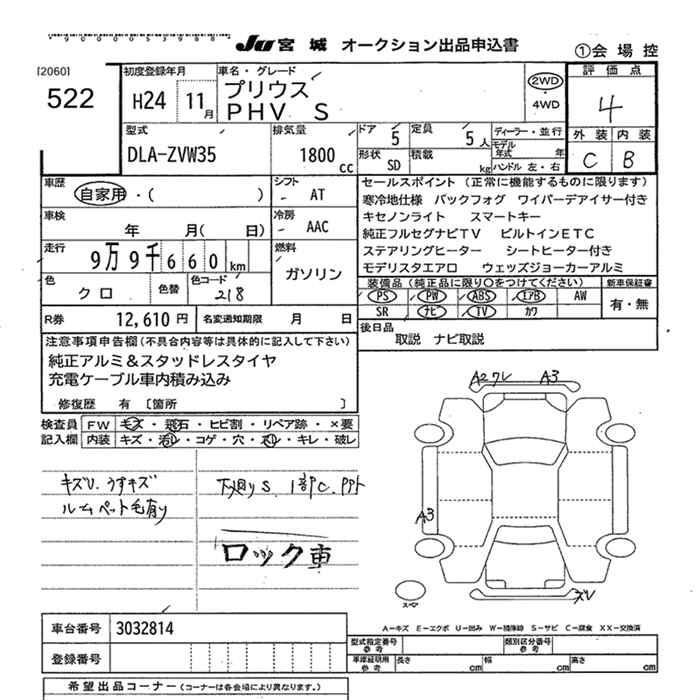 JU 宮城 オークション出品申込書
①会場控
[2060]
522
初度登録年月
H24 11月
車名・グレード
プリウス
PHV S
2WD
4WD
評価点
4
外装 内装
C B
型式
DLA-ZVW35
排気量
1800cc
ドア 5
定員 5人
形状 SD
積載 kg
ディーラー・並行
モデル年式 年
ハンドル 左・右
車歴
自家用・( )
シフト
AT
車検
年 月(日)
冷房
AAC
走行
9万9千660km
燃料
ガソリン
色
クロ
色替
色コード
218
R券 12,610円
名変通知期限 月 日
セールスポイント (正常に機能するものに限ります)
寒冷地仕様 バックフォグ ワイパーデアイサー付き
キセノンライト スマートキー
純正フルセグナビTV ビルトインETC
ステアリングヒーター シートヒーター付き
モデリスタエアロ ウェッズジョーカーアルミ
装備品(純正品に限り○をつけてください)
PS PW ABS エアB AW
SR ナビ TV カワ
新車保証書
有・無
後日品
取説 ナビ取説
注意事項申告欄(不具合内容等は具体的に記入して下さい)
純正アルミ&スタッドレスタイヤ
充電ケーブル車内積み込み
修復歴 有 [箇所 ]
検査員記入欄
FW キズ・飛石・ヒビ割・リペア跡・×要
内装 キズ・汚レ・コゲ・穴・スレ・キレ・破レ
キズU.うすキズ
ルームペット毛有り
下廻りS.1部C.PPト
ロック車
A2ワレ A3
A3
ズレ
スペア
A-キズ E-エクボ U-凹み W-補修跡 S-サビ C-腐食 XX-交換済
車台番号 3032814
登録番号
型式指定番号 参考
類別区分番号 参考
車庫証明用参考
長さ cm 幅 cm 高さ cm
希望出品コーナー(コーナーは各会場により異なります。)